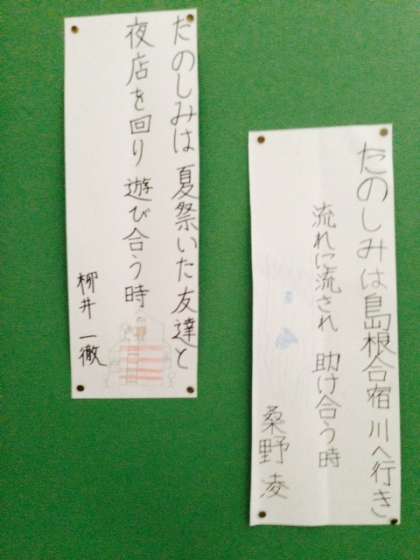 たのしみは 夏祭いた友達と
夜店を回り 遊び合う時
柳井 一徹
たのしみは島根合宿 川へ行き
流れに流され 助け合う時
桑野 凌